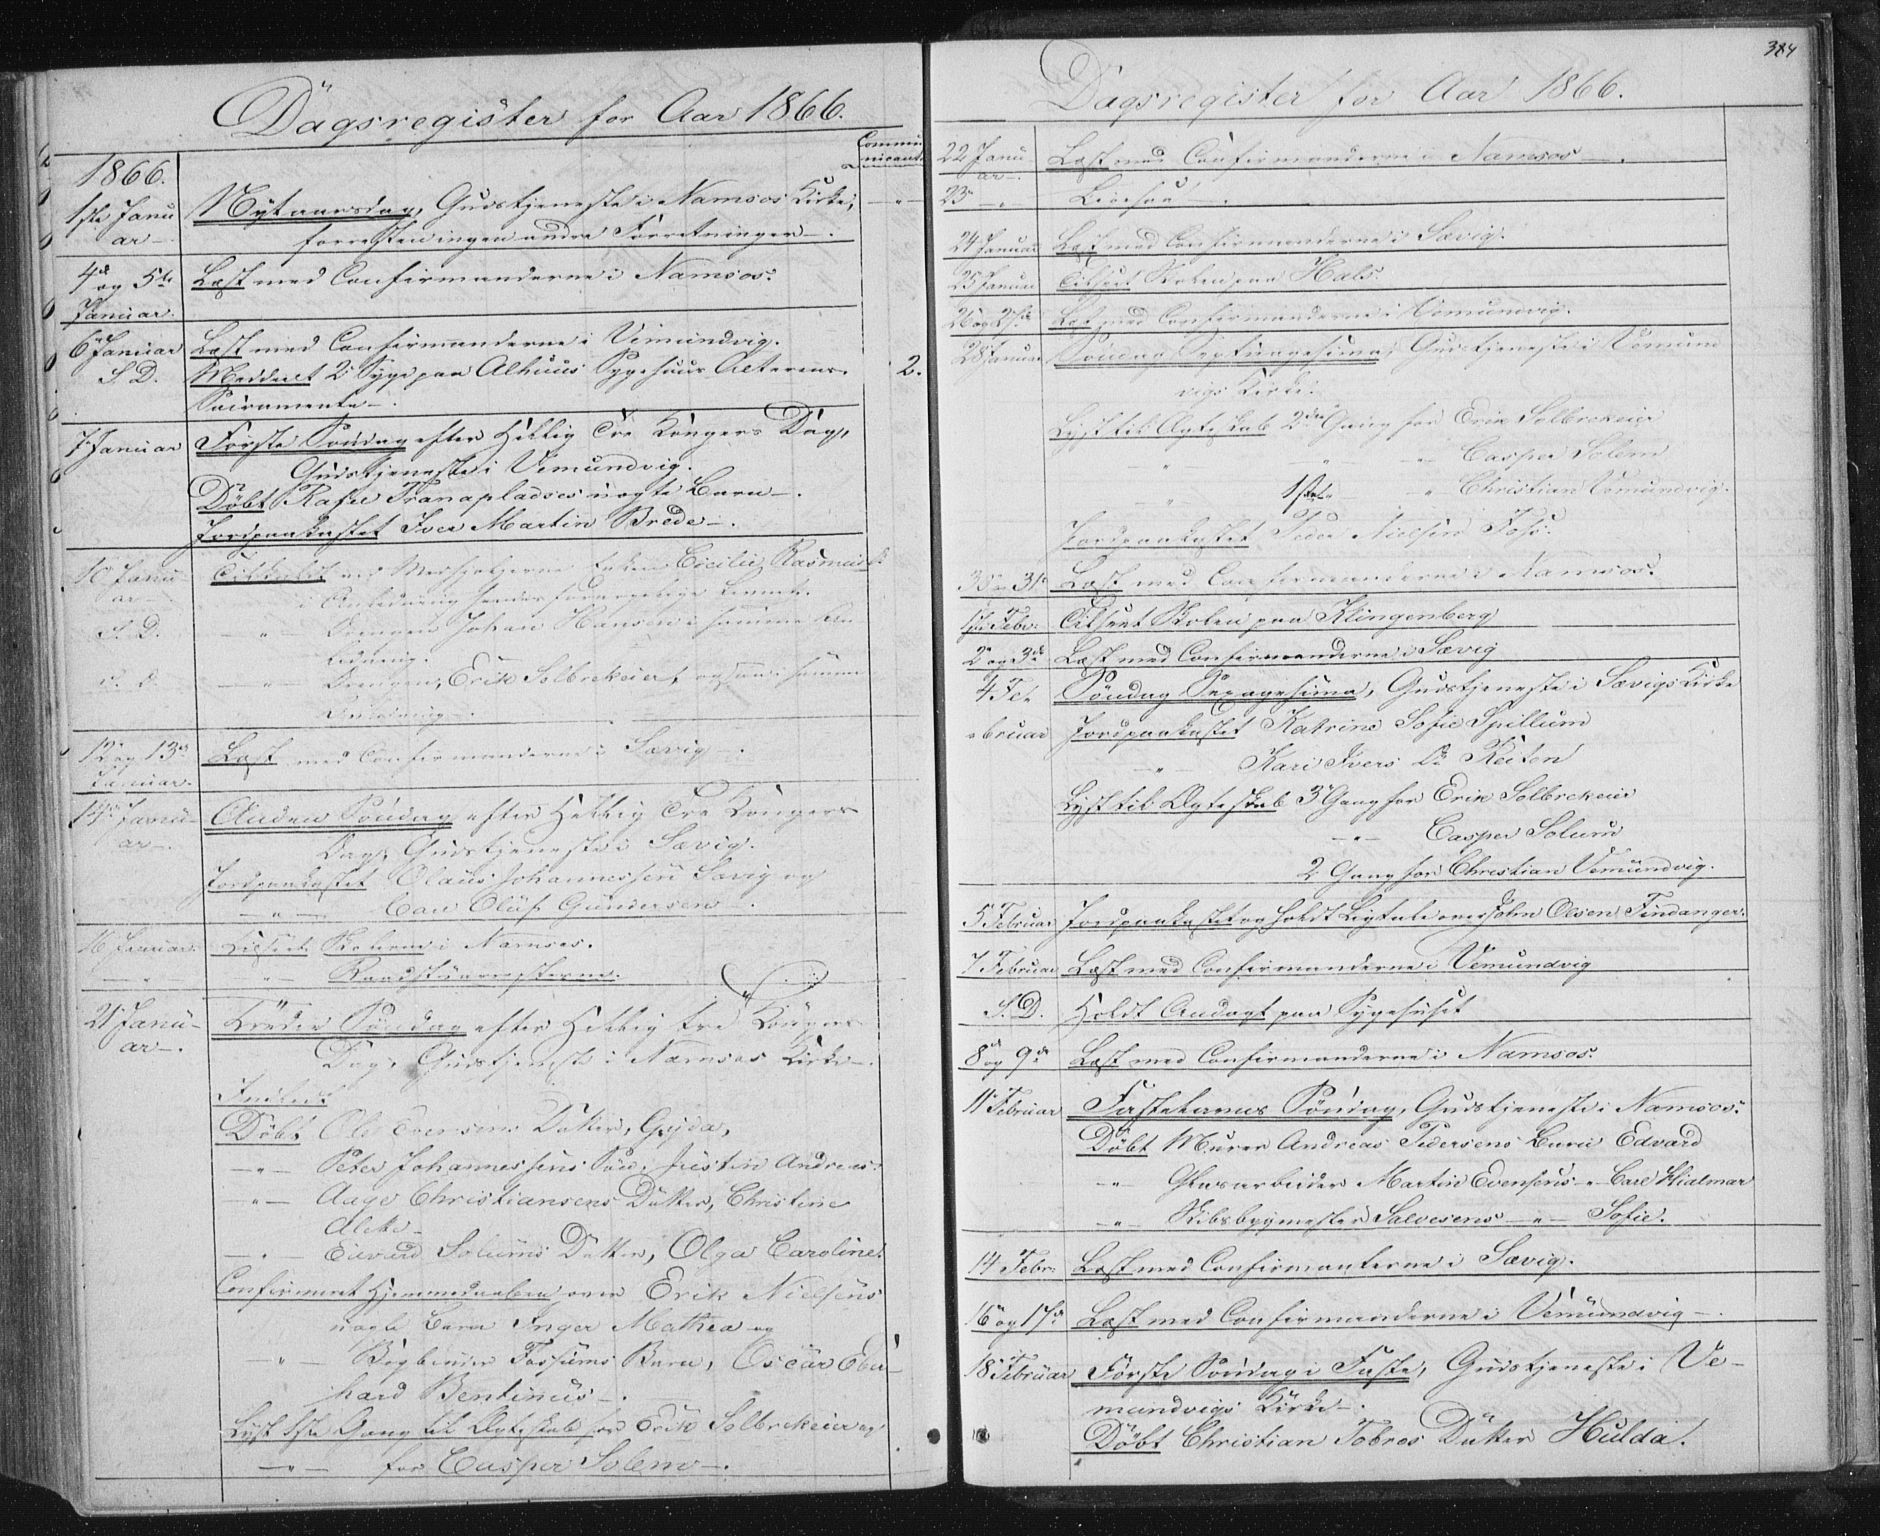 Dagsregister for Aar 1866.
Communicant
1866.
1ste Januar Nytaarsdag, Gudstjeneste i Namsos Kirke;
forresten ingen andre Forretninger.
4de og 5te Januar. Læst med Confirmanderne i Namsos.
6 Januar Læst med Confirmanderne i Vemundvig.
S. D. Meddeelt 2 Syge paa Alhuus Sygehuus Alterens 2.
Sacramente.
7 Januar Første Søndag efter Hellig Tre Kongers Dag,
Gudstjeneste i Vemundvig.
Døbt Tranapladses uægte Barn.
Jordpaakastet Iver Martin Brede.
10 Januar Enken Cicilie Rasmus
i Anledning hendes
S. D. " Drengen Johan Hansen i samme An
ledning.
S. D. " Drengen, Erik Solbrekeier, ogsaa i samme
Anledning.
12 og 13 Januar. Læst med Confirmanderne i Sævig.
14 Januar Anden Søndag efter Hellig Tre Kongers
Dag, Gudstjeneste i Sævig.
Jordpaakastet Olaus Johannessen Sævig og
" Oluf Gundersen
16 Januar. Skolerne i Namsos.
21 Januar. Søndag efter Hellig tre Kongers
Dag, Gudstjeneste i Namsos Kirke.
Døbt Ole Evensens Datter, Gyda,
" Peter Johannessens Søn, Justin Andreas.
" Aage Christiansens Datter, Christine
" Edvard Solums Datter, Olga Caroline.
Confirmeret Hjemmedaaben over Erik Nielsens
uægte Barn Inger Mathea og
" Bogbinder Fossums Barn, Oscar Eber
hard Bentinus.
Lyst 1ste Gang til Ægteskab for Erik Solbrekeier og
" for Casper Solem.
384
Dagsregister for Aar 1866.
22 Januar. Læst med Confirmanderne i Namsos.
23
24 Januar Læst med Confirmanderne i Sævig.
25 Januar Skolen paa Hals.
26 og 27de Læst med Confirmanderne i Vemundvig.
28 Januar Søndag Septuagesima, Gudstjeneste i Vemund
vigs Kirke.
Lyst til Ægteskab 2den Gang for Erik Solbrekeier
" " " Casper Solem
" 1ste " " Christian Vemundvig.
Jordpaakastet Peder Nielsen
30 31 Læst med Confirmanderne i Namsos.
1ste Febr. Skolen paa Klingenberg
2 og 3de Læst med Confirmanderne i Sævig
4 Februar Søndag Sexagesima, Gudstjeneste i Sævigs Kirke
Jordpaakastet Katrine Sofie Spillum
" Kari Ivers Dr Reiten
Lyst til Ægteskab 3 Gang for Erik Solbrekeier
" Casper Solum
2 Gang for Christian Vemundvig.
5 Februar Jordpaakastet og holdt Ligtale over John Olsen Tindanger.
7 Februar Læst med Confirmanderne i Vemundvig
S. D. Holdt Andagt paa Sygehuset
8 og 9de Læst med Confirmanderne i Namsos.
11 Februar Fastelavns Søndag, Gudstjeneste i Namsos.
Døbt Murer Andreas Pedersens Barn Edvard
" Glasarbeider Martin Evensens " Carl Hialmar
" Skibsbygmester Salvesens " Sofie.
14 Febr. Læst med Confirmanterne i Sævig.
16 og 17de Læst med Confirmanderne i Vemundvig.
18 Februar Første Søndag i Faste, Gudstjeneste i Ve-
mundvigs Kirke.
Døbt Christian Tobros Datter Hulda.